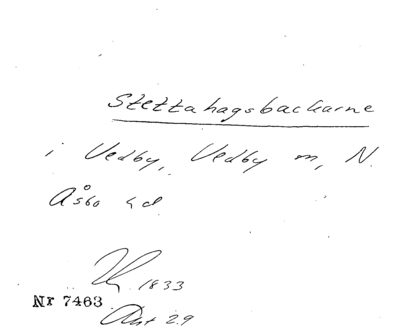 Stettahagsbackarne
i Vedby, Vedby m, N.
Åsbo hd
1833
Nr 7463
Akt 29